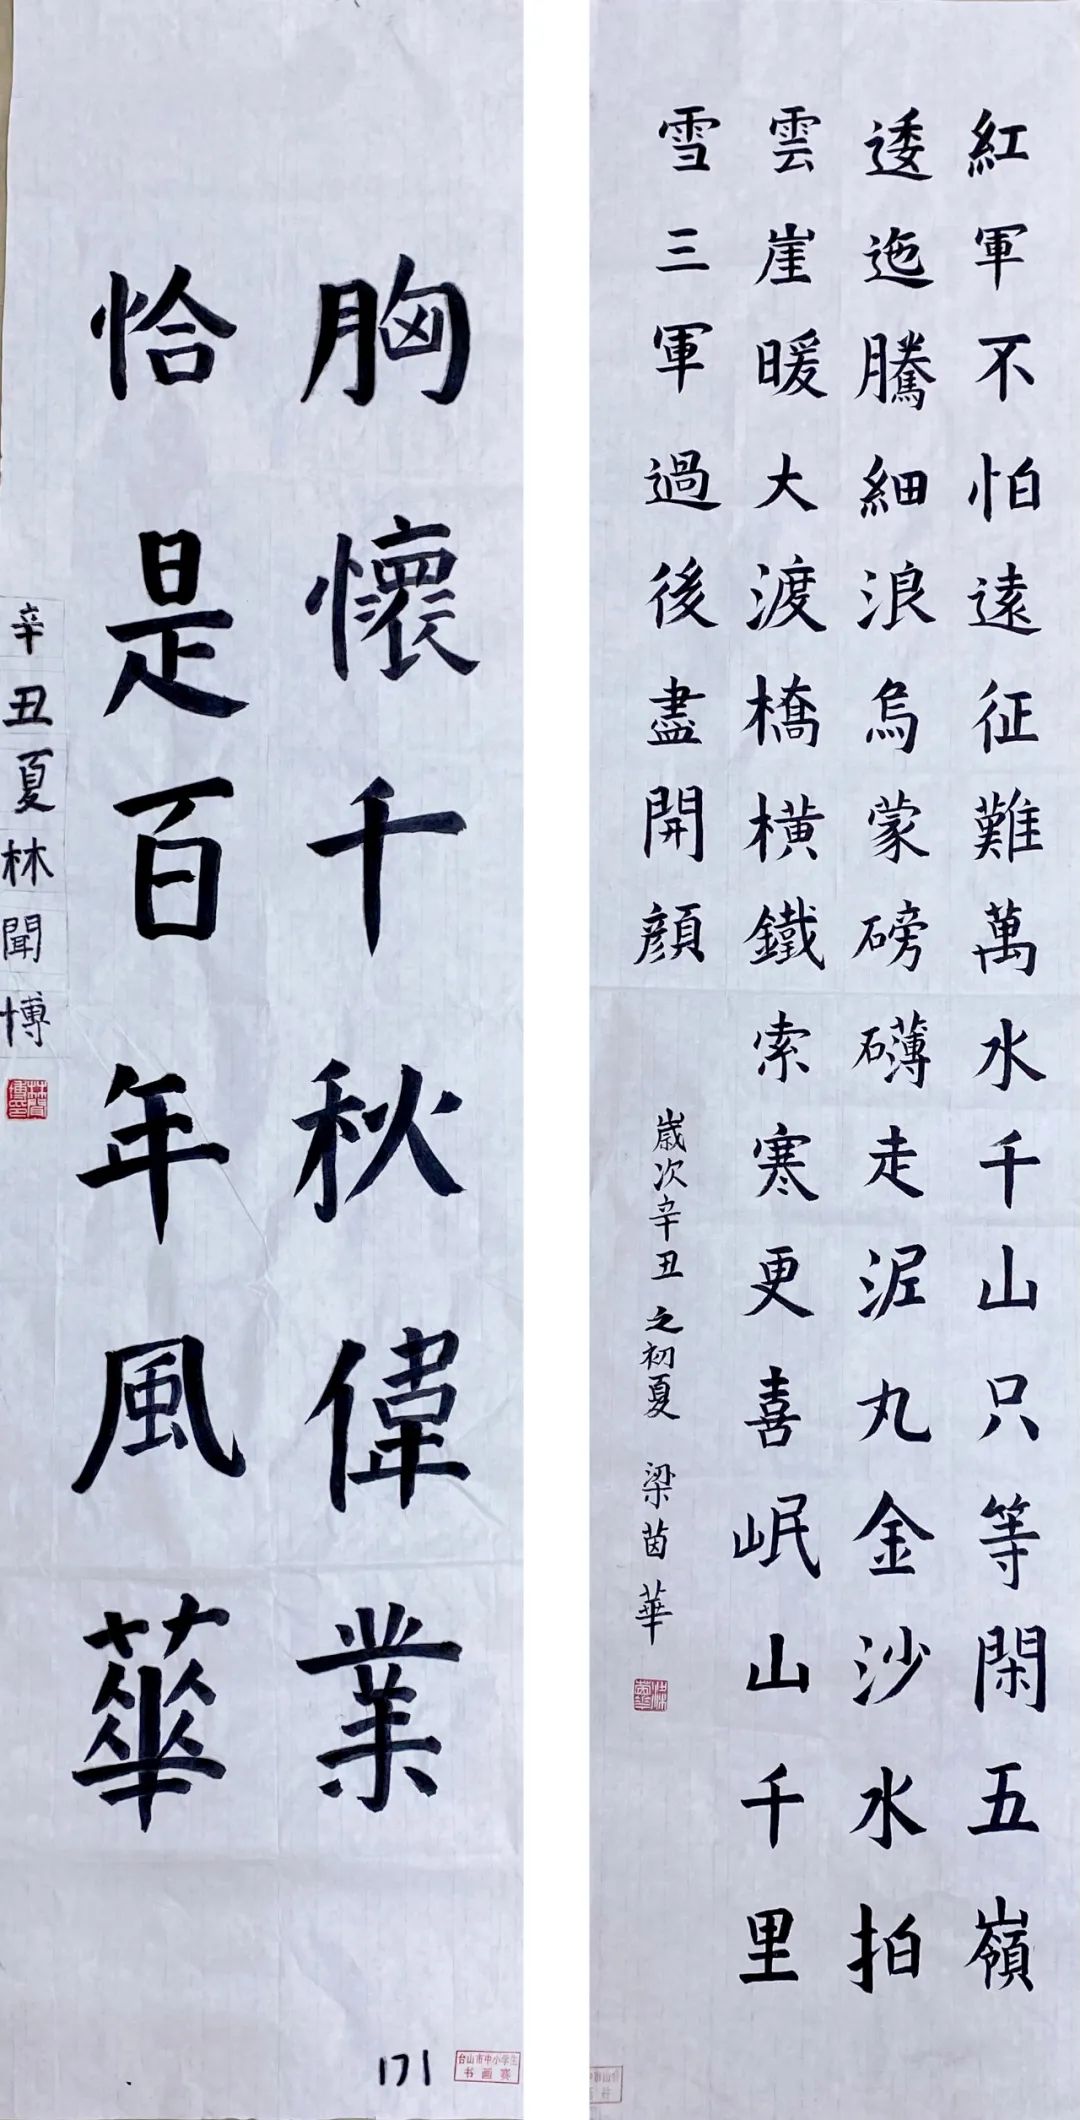 胸懷千秋偉業
恰是百年風華
辛丑夏林聞博
171
台山市中小学生
书画赛
紅軍不怕遠征難萬水千山只等閑五嶺
逶迤騰細浪烏蒙磅礴走泥丸金沙水拍
雲崖暖大渡橋橫鐵索寒更喜岷山千里
雪三軍過後盡開顏
歲次辛丑之初夏 梁茵華